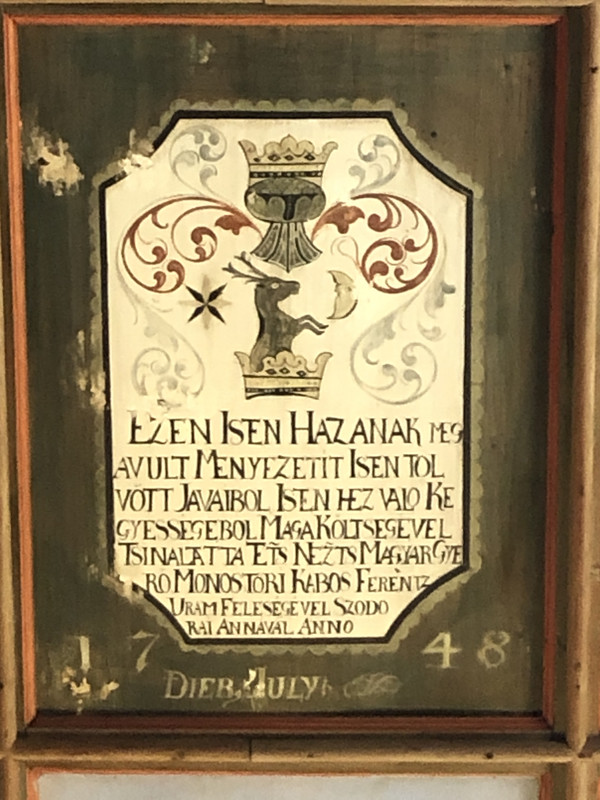 EZEN ISEN HAZANAK MEG
AVULT MENYEZETIT ISEN TOL
VÖTT JAVAIBOL ISEN HEZ VALO KE
GYESSEGEBOL MAGA KÖLTSEGEVEL
TSINALTATTA TEŤS NEŽTS MAGYAR GYE
RO MONOSTORI KABOS FERENTZ
URAM FELESEGEVEL SZODO
RAI ANNAVAL ANNO
17 48
DIEB. JULY